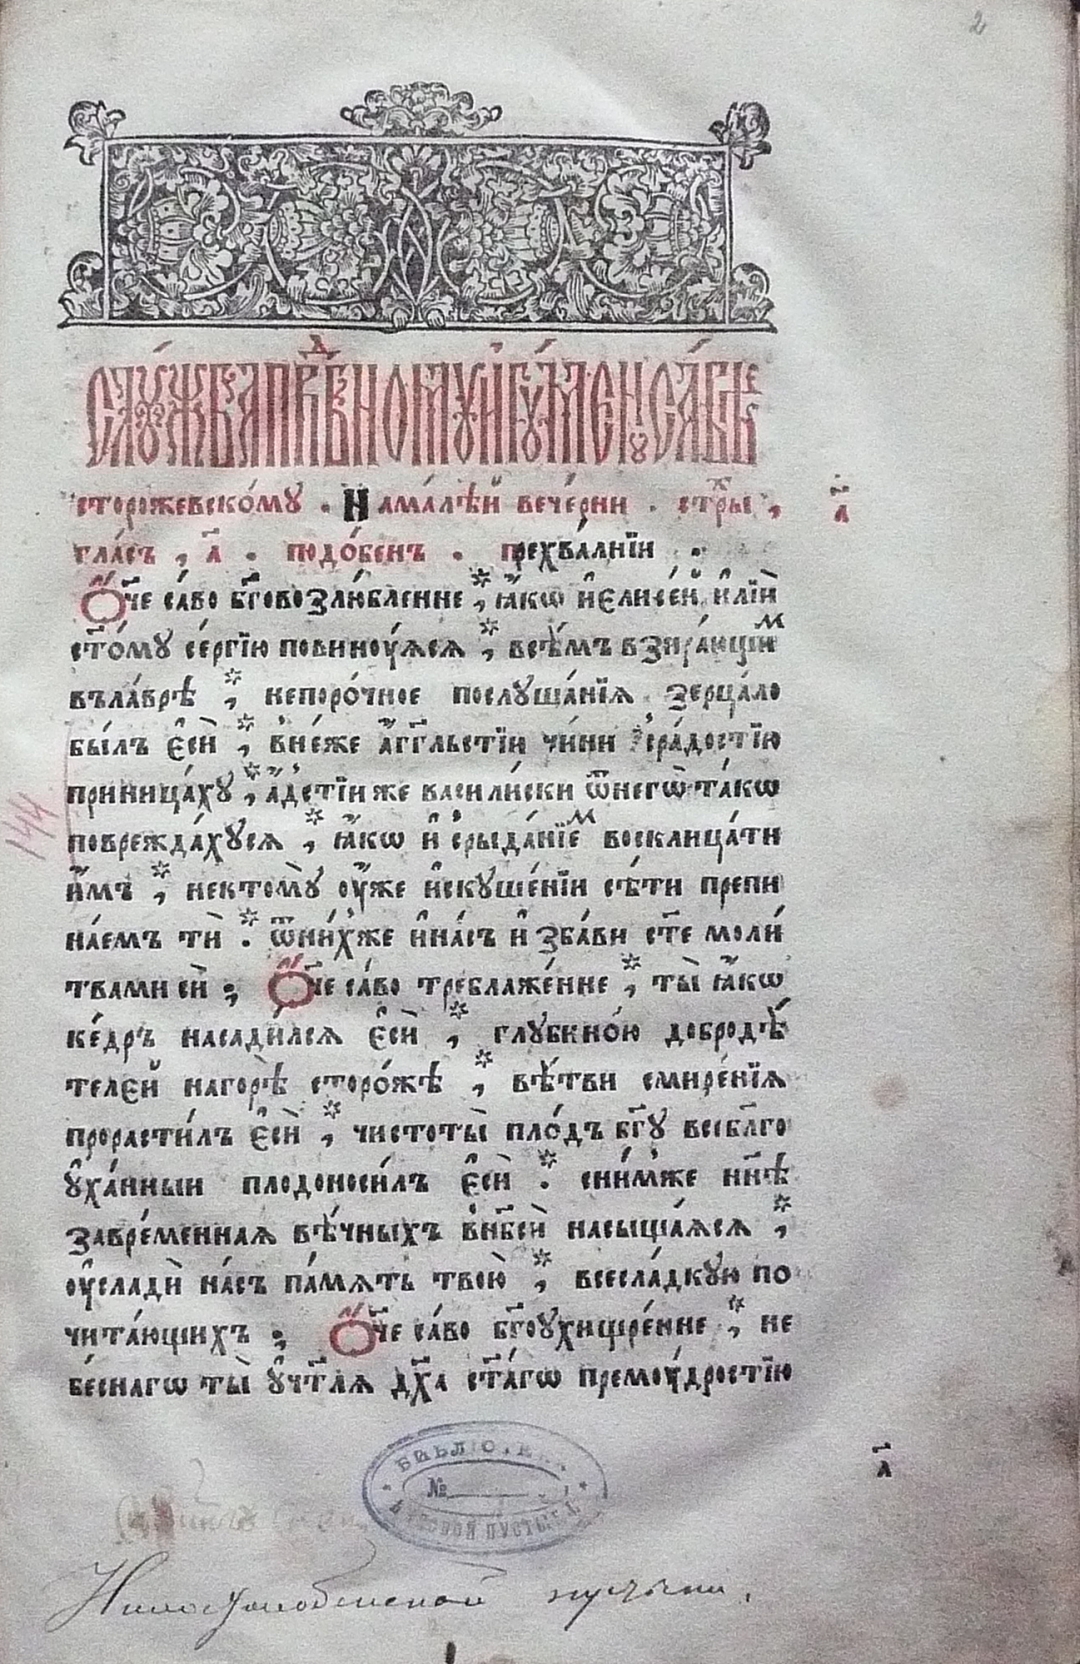 2
Слꙋ́жба прпⷣбномꙋ и҆гꙋ́менꙋ са́вѣ
сторожевско́мꙋ . На ма́лѣй вече́рни . стⷯры ,
а҃
гла́съ , а҃ . подо́бенъ . прехва́лнїи .
О҆́ч҃е са́во бг҃овозлю́бленне *, ꙗ҆́кѡ и҆ є҆лисе́й и҆лїѝ
ст҃о́мꙋ се́ргїю повинꙋ́ѧсѧ *, всѣ́мъ взира́ющиⷨ
въ ла́врѣ *, непоро́чное послꙋша́нїѧ зерца́ло
бы́лъ є҆сѝ *, в не́же а҆́гг҃льстїи чи́ни с ра́достїю
приница́хꙋ *, а҆́дстїи же васили́ски ѿ негѡ̀ та́кѡ
поврежда́хꙋсѧ *, ꙗ҆́кѡ и҆ с рыда́нїеⷨ восклица́ти
и҆̀мъ *, не ктомꙋ̀ ᲂу҆́же и҆скꙋше́нїи сѣ́ти препи
на́емъ тѝ . * ѿ ни́хже и҆ на́съ и҆збави ст҃е моли́
твами сѝ ; О҆́ч҃е са́во треблаже́нне *, ты̀ ꙗ҆́кѡ
ке́дръ насади́лсѧ є҆сѝ *, глꙋбино́ю добродѣ́
телей на горѣ̀ сторо́жѣ *, вѣ́тви смире́нїѧ
прорасти́лъ є҆сѝ *, чистоты̀ пло́дъ бг҃ꙋ всебл҃го
ꙋ҆ха́нныи плодоноси́лъ є҆сѝ . * с ни́мже нн҃ѣ
за вре́меннаѧ вѣ́чныхъ в нб҃сѝ насыща́ѧсѧ *,
ᲂу҆сладѝ на́съ па́мѧть твою̀ *, всесла́дкꙋю по
чита́ющихъ ; О҆́ч҃е са́во бг҃оꙋхищре́нне *, не
бе́снагѡ ты̀ ꙋ҆чт҃лѧ дх҃а ст҃а́гѡ премꙋ́дростїю
а҃
№
Нилосоловенской пустыни.
144